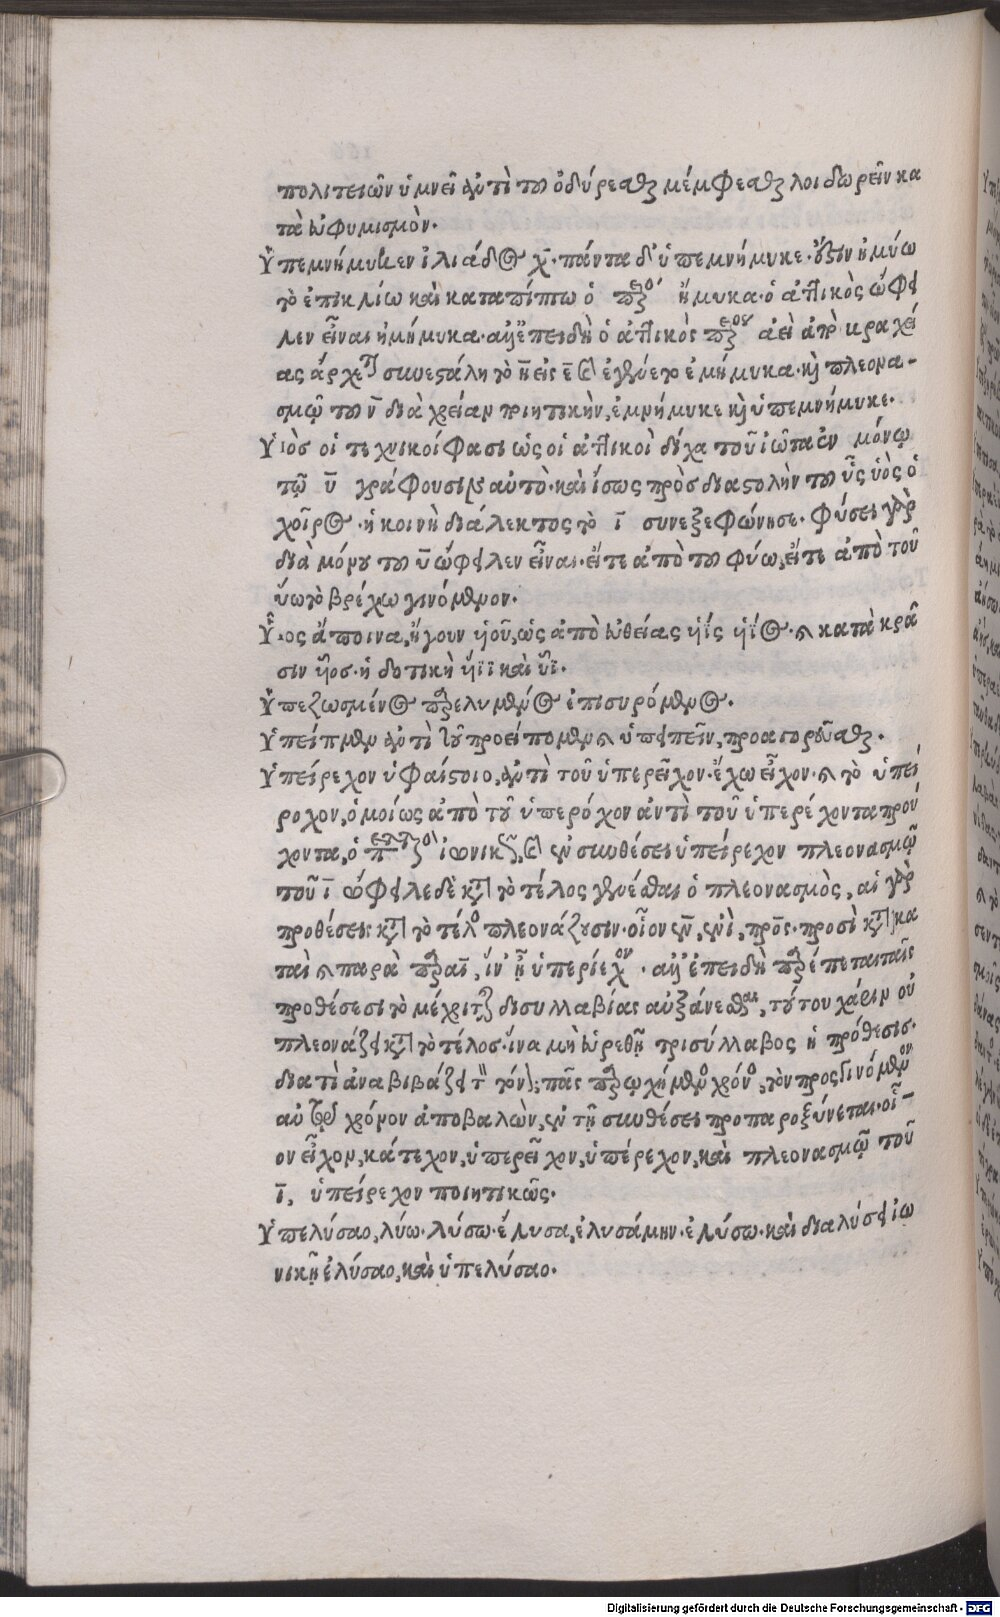 πολιτειῶν ὑμνεῖ ἀντὶ τοῦ ὀδύρεσθαι μέμφεσθαι λοιδωρεῖν κα
τὰ εὐφυμισμὸν.
Ὑπεμνήμυκεν ἰλιάδος χ̄. πάντα δ' ὑπεμνήμυκε. ἠμύω
τὸ ἐπικλίω καὶ καταπίπτω ὁ ἤμυκα. ὁ ἀττικὸς ὤφει
λεν εἶναι ἠμήμυκα. ἐπειδὴ ὁ ἀττικὸς ἀεὶ ἀπὸ βραχεί
ας ἄρχεται συνεστάλη τὸ η̄ εἰς ε̄ καὶ ἐγένετο ἐμήμυκα. καὶ πλεονα-
σμῷ τοῦ ν̄ διὰ χρείαν ποιητικὴν, ἐμνήμυκε καὶ ὑπεμνήμυκε.
Ὑιὸς οἱ τεχνικοί φασι ὡς οἱ ἀττικοὶ δίχα τοῦ ἰῶτα ἐν μόνῳ
τῷ ῡ γράφουσιν αὐτὸ. καὶ ἴσως πρὸς διαστολὴν τοῦ ὗς ὑὸς ὁ
χοῖρος. ἡ κοινὴ διάλεκτος τὸ ῑ συνεξεφώνησε. φύσει γὰρ
διὰ μόνου τοῦ ῡ ὤφειλεν εἶναι. εἴτε ἀπὸ τοῦ φύω, εἴτε ἀπὸ τοῦ
ὕω τὸ βρέχω γινόμενον.
Ὗιος ἄποινα, ἤγουν ὑιοῦ, ὡς ἀπὸ εὐθείας ὑΐς ὑΐος. καὶ κατὰ κρᾶ
σιν ὗος. ἡ δοτικὴ ὕϊϊ καὶ ὕϊ.
Ὑπεζωσμένος παρελυμένος ἐπισυρόμενος.
Ὑπείπμεν ἀντὶ τοῦ προείπομεν καὶ ὑπειπεῖν, προαγορεῦσαι.
Ὑπείρεχον ὑφαίστοιο, ἀντὶ τοῦ ὑπερεῖχον. ἔχω εἶχον. καὶ τὸ ὑπεί
ροχον, ὁμοίως ἀπὸ τοῦ ὑπερόχον ἀντὶ τοῦ ὑπερέχοντα πρού
χοντα, ὁ ἰωνικῶς, καὶ ἐν συνθέσει ὑπείρεχον πλεονασμῷ
τοῦ ῑ ὤφειλε δὲ κατὰ τὸ τέλος γενέσθαι ὁ πλεονασμὸς, αἱ γὰρ
προθέσεις κατὰ τὸ τέλος πλεονάζουσιν. οἷον ἐν, ἐνὶ, πρὸς. προσὶ κατὰ κα
ταὶ καὶ παρὰ παραῖ, ἵν' ᾖ ὑπερίεχον. ἐπειδὴ παρέπεται ταῖς
προθέσεσι τὸ μέχρι τῆς δισυλλαβίας αὐξάνεσθαι, τούτου χάριν οὐ
πλεονάζει κατὰ τὸ τέλος. ἵνα μὴ εὑρεθῇ τρισύλλαβος ἡ πρόθεσις.
διατὶ ἀναβιβάζει τὸν τόνον; πᾶς παρῳχημένος χρόνος, τὸν προσγινόμενον
αὐτῷ χρόνον ἀποβαλὼν, ἐν τῇ συνθέσει προπαροξύνεται. οἷ-
ον εἶχον, κάτεχον, ὑπερεῖχον, ὑπέρεχον, καὶ πλεονασμῷ τοῦ
ῑ, ὑπείρεχον ποιητικῶς.
Ὑπελύσαο, λύω. λύσω. ἔλυσα, ἐλυσάμην. ἐλύσω. καὶ διαλύσει ἰω
νικῇ ἐλύσαο, καὶ ὑπελύσαο.
Digitalisierung gefördert durch die Deutsche Forschungsgemeinschaft - DFG